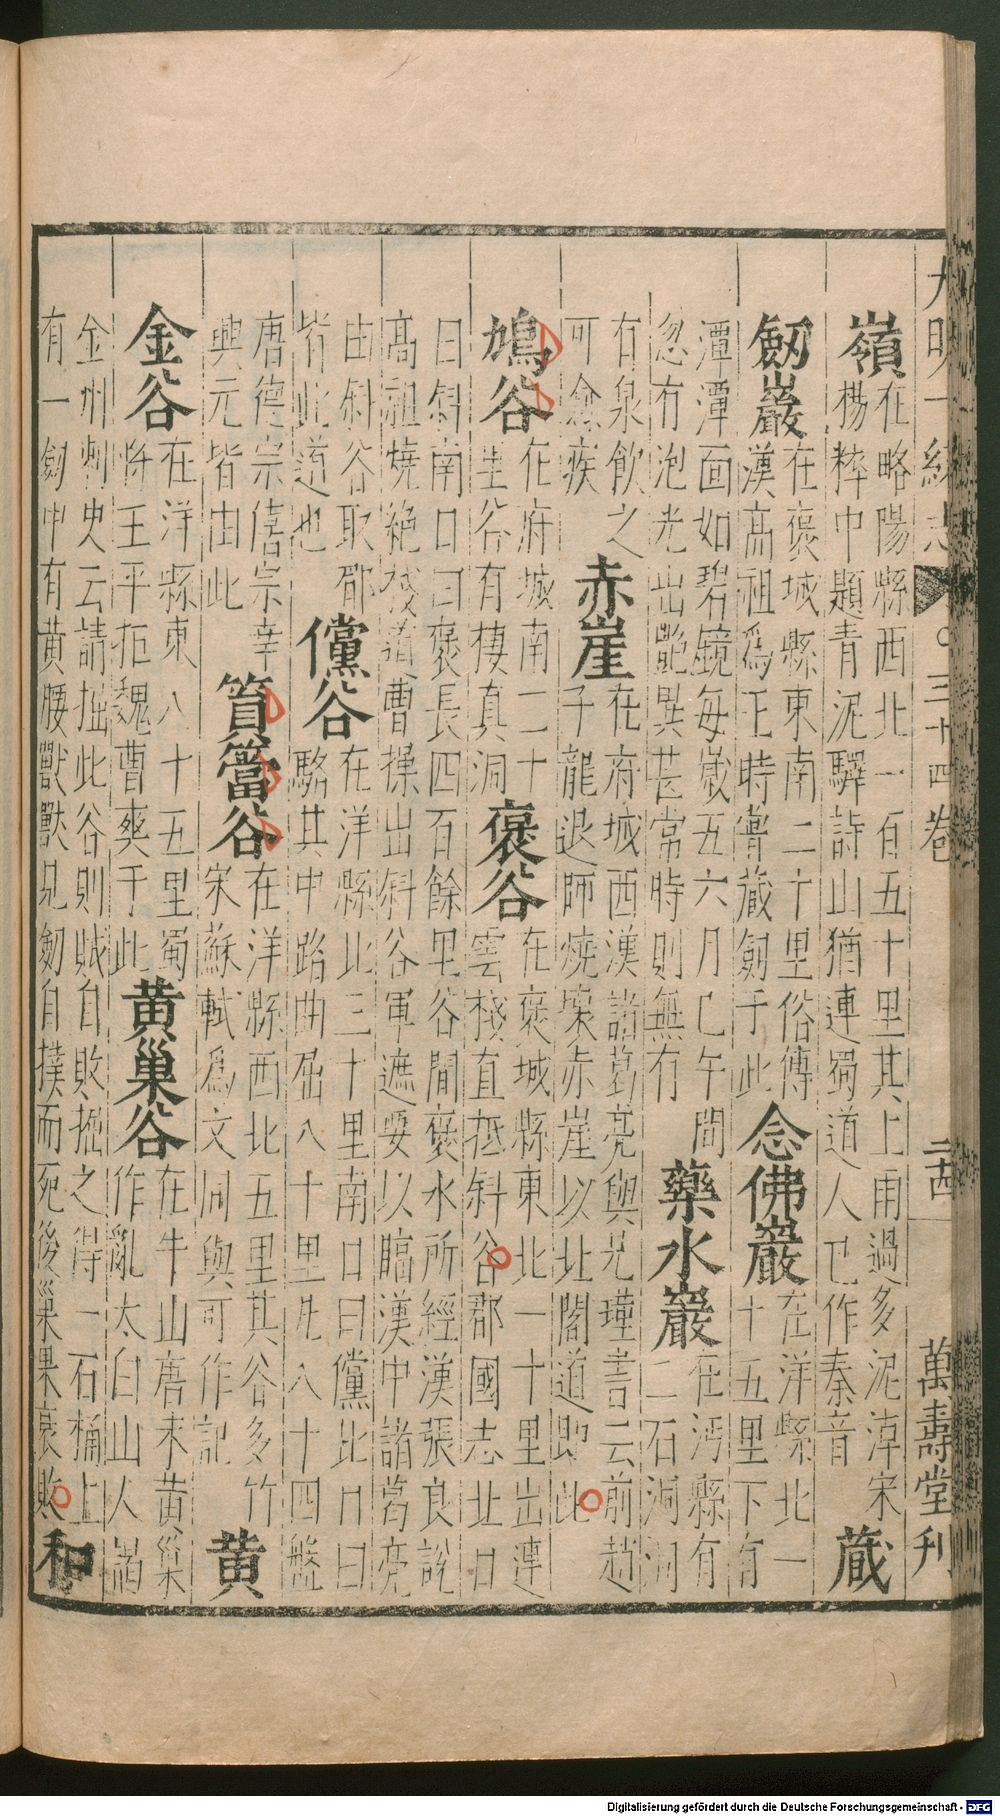 大明一統志 三十四卷 二十四 萬壽堂刊
嶺在略陽縣西北一百五十里其上雨過多泥淖宋楊粹中題青泥驛詩山猶連蜀道人已作秦音 藏
劒巖在褒城縣東南二十里俗傳漢高祖爲王時嘗藏劒于此 念佛巖在洋縣北一十五里下有
潭潭面如碧鏡每歲五六月巳午間忽有泡光出艷異甚常時則無有 藥水巖在沔縣有二石洞洞
有泉飲之可愈疾 赤崖在府城西漢諸葛亮與兄瑾書云前趙子龍退師燒壞赤崖以北閣道即此
鳩谷在府城南二十里谷有棲真洞 褒谷在褒城縣東北一十里出連雲棧直抵斜谷郡國志北口
曰斜南口曰褒長四百餘里谷間褒水所經漢張良說高祖燒絕棧道曹操出斜谷軍遮要以臨漢中諸葛亮
由斜谷取郿皆此道也 儻谷在洋縣北三十里南口曰儻北口曰駱其中路曲屈八十里凡八十四盤
唐德宗僖宗幸興元皆由此 篔簹谷在洋縣西北五里其谷多竹宋蘇軾爲文同與可作記 黄
金谷在洋縣東八十五里蜀將王平拒魏曹爽于此 黄巢谷在牛山唐末黄巢作亂太白山人謁
金州刺史云請掘此谷則賊自敗掘之得一石桶上有一劒中有黄腰獸獸見劒自撲而死後巢果衰敗 和
Digitalisierung gefördert durch die Deutsche Forschungsgemeinschaft - DFG